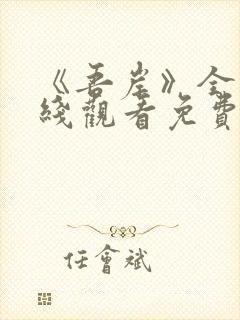 《吾岸》全
綫觀看免費
任會斌